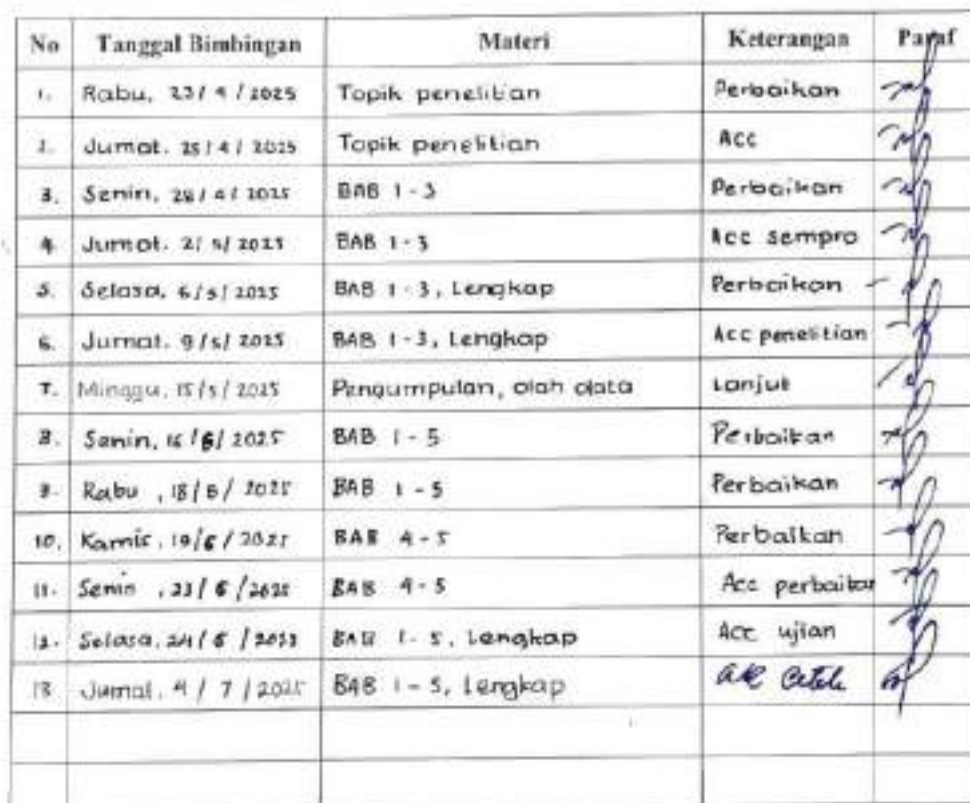 No Tanggal Bimbingan Materi Keterangan Paraf
1. Rabu, 23/4/2025 Topik penelitian Perbaikan
2. Jumat, 25/4/2025 Topik penelitian Acc
3. Senin, 28/4/2025 BAB 1-3 Perbaikan
4. Jumat, 2/5/2025 BAB 1-3 Acc sempro
5. Selasa, 6/5/2025 BAB 1-3, Lengkap Perbaikan
6. Jumat, 9/5/2025 BAB 1-3, Lengkap Acc penelitian
7. Minggu, 15/5/2025 Pengumpulan, olah data Lanjut
8. Senin, 16/6/2025 BAB 1-5 Perbaikan
9. Rabu, 18/6/2025 BAB 1-5 Perbaikan
10. Kamis, 19/6/2025 BAB 4-5 Perbaikan
11. Senin, 23/6/2025 BAB 4-5 Acc perbaikan
12. Selasa, 24/6/2025 BAB 1-5, Lengkap Acc ujian
13. Jumat, 4/7/2025 BAB 1-5, Lengkap